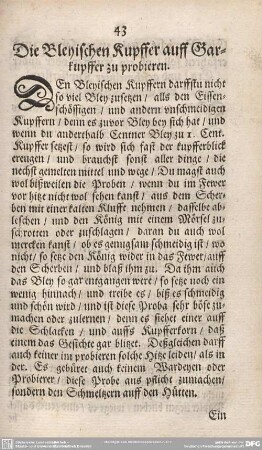 43
Die Bleyischen Kupffer auff Gar-
kupffer zu probieren.
DEn Bleyischen Kupffern darffstu nicht
so viel Bley zusetzen / alls den Eisen-
schössigen / und andern unschmeidigen
Kupffern / denn es zuvor Bley bey sich hat / und
wenn du anderthalb Centner Bley zu 1. Cent.
Kupffer setzest / so wird sich fast der kupfferblick
ereugen / und brauchst sonst aller dinge / die
nechst gemelten mittel und wege / Du magst auch
wol bißweilen die Proben / wenn du im Fewer
vor hitze nicht wol sehen kanst / aus dem Scher-
ben mit einer kalten Klufft nehmen / dasselbe ab-
lischen / und den König mit einem Mörsel zu-
schrotten oder zuschlagen / daran du auch wol
mercken kanst / ob es genugsam schmeidig ist / wo
nicht / so setze den König wider in das Fewer / auff
den Scherben / und blaß ihm zu. Da ihm auch
das Bley so gar entgangen were / so setze noch ein
wenig hinnach / und treibe es / biß es schmeidig
und schön wird / und ist diese Proba sehr böse zu-
machen oder zulernen / denn es siehet einer auff
die Schlacken / und auffs Kupfferkorn / daß
einem das Gesichte gar blitzet. Deßgleichen darff
auch keiner im probieren solche Hitze leiden / als in
der. Es gebüret auch keinem Wardeyen oder
Probierer / diese Probe aus pflicht zumachen /
sondern den Schmeltzern auff den Hütten.
Ein